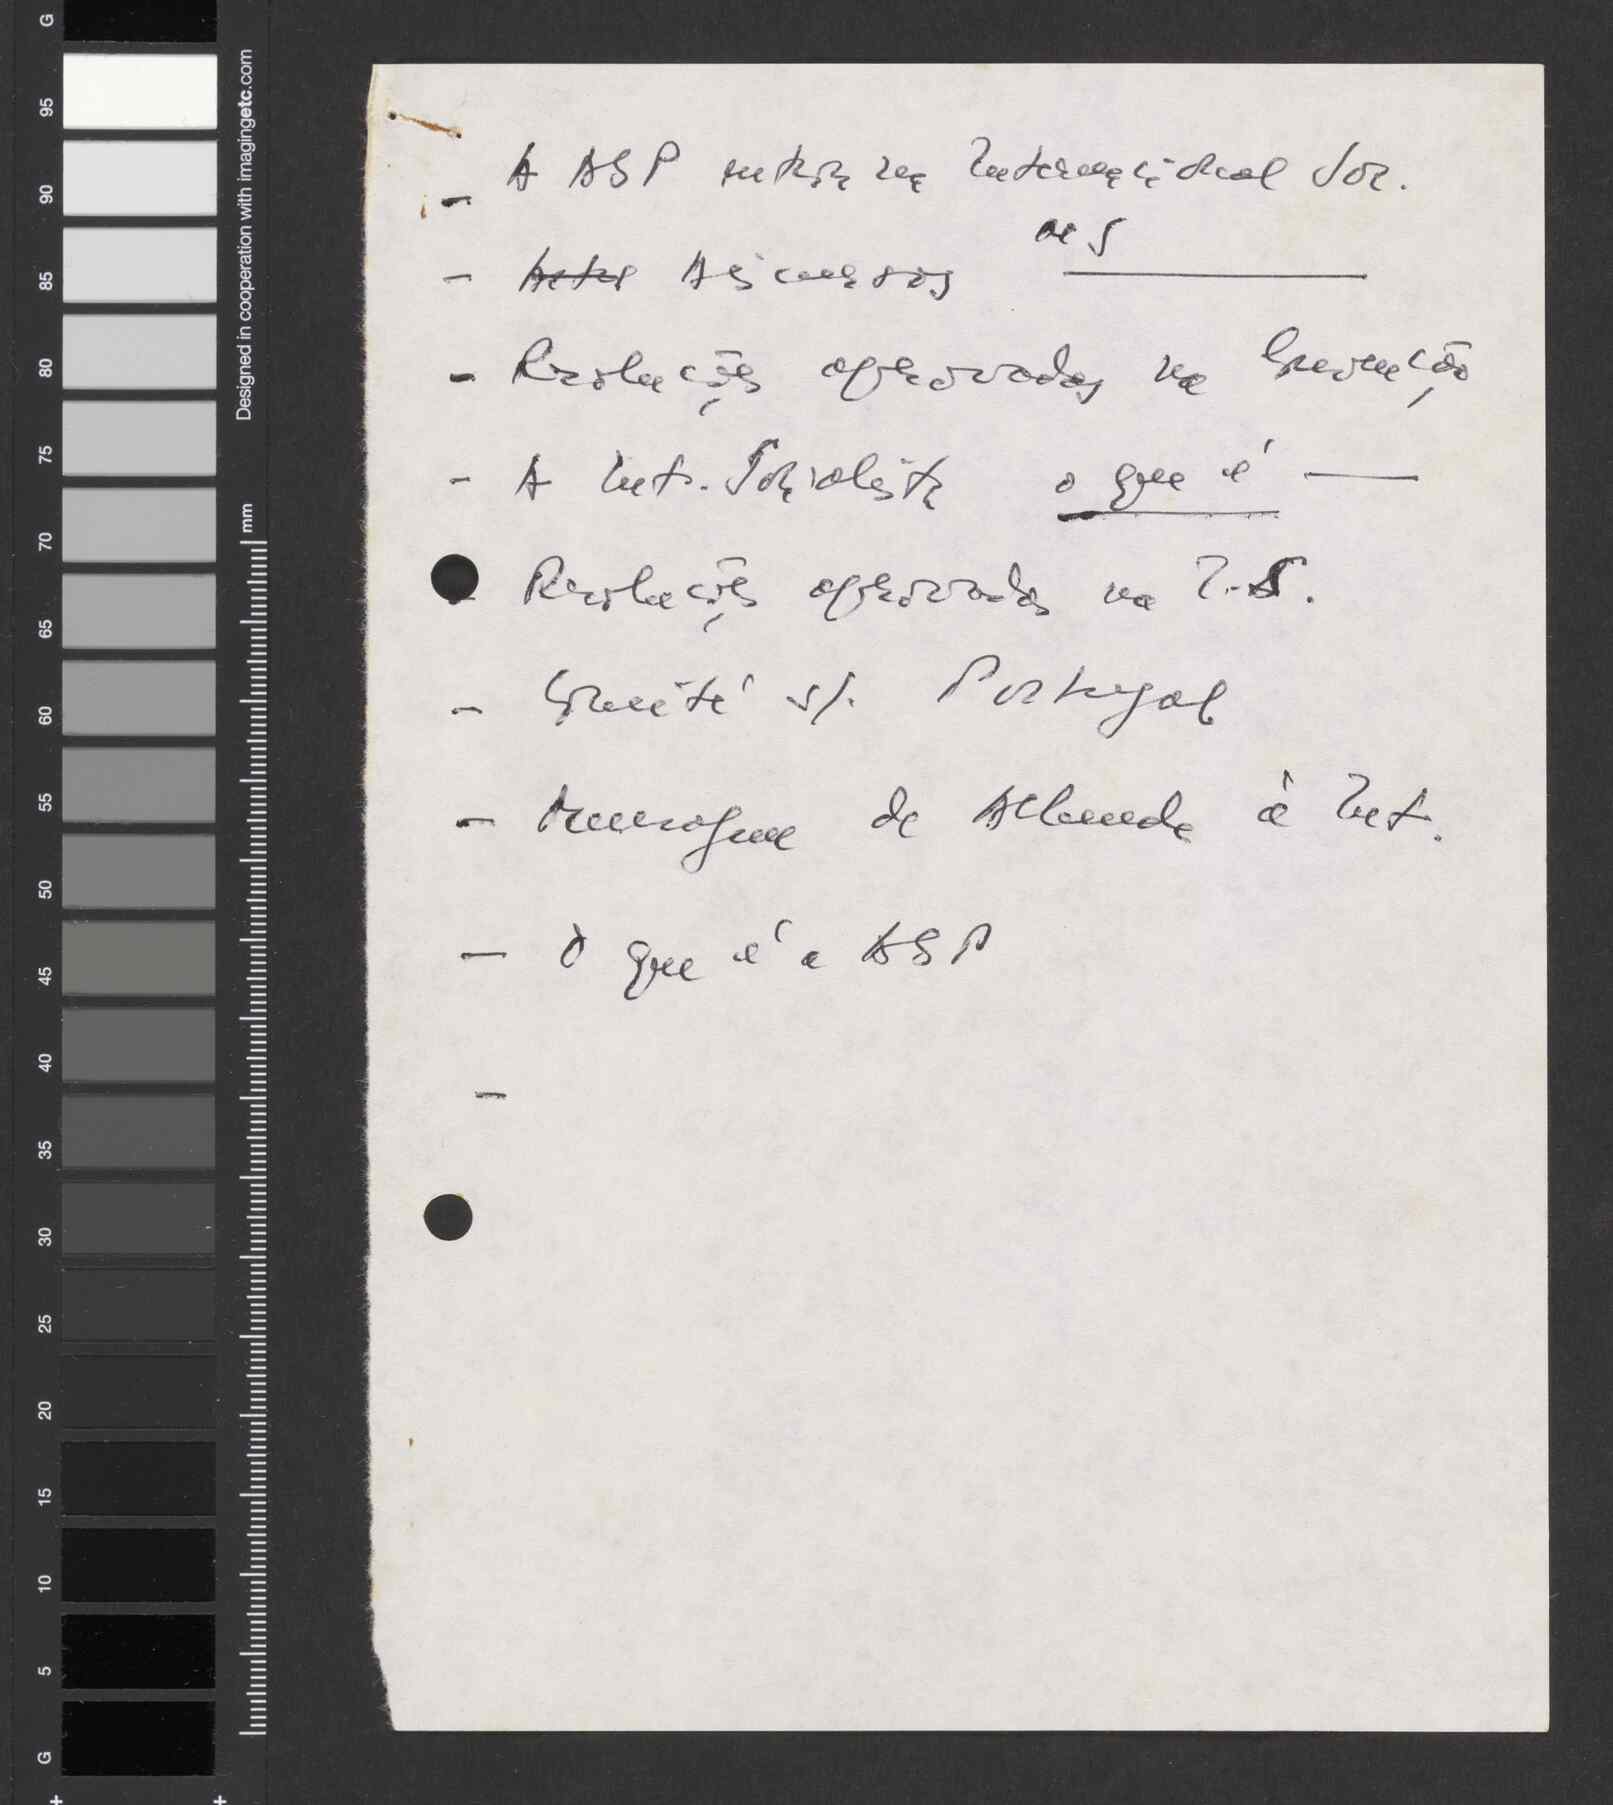 - A ASP entra na Internacional Soc.
- Actos Discursos MS
- Resoluções aprovadas na
- A Int. Socialista o que é
- Resoluções aprovadas na I.S.
- Comité s/. Portugal
- de Allende à Int.
- O que é a ASP
-
G
95
90
85
80
75
70
65
60
55
50
45
40
35
30
25
20
15
10
5
G
Designed in cooperation with imagingetc.com
mm